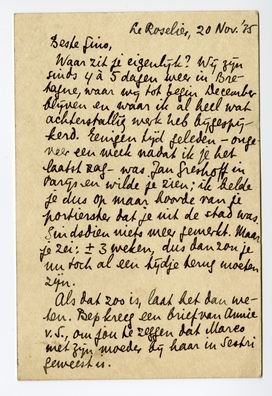 Le Roselier, 20 Nov. '35
Beste Gino,
Waar zit je eigenlijk? Wij zijn
sinds 4 à 5 dagen weer in Bre-
tagne, waar wij tot begin December
blijven en waar ik al heel wat
achterstallig werk heb bijgespij-
kerd. Eenigen tijd geleden - onge-
veer een week nadat ik je het
laatst zag - was Jan Greshoff in
Parijs en wilde je zien; ik belde
je dus op maar hoorde van je
portiershe dat je uit de stad was.
Sindsdien niets meer gemerkt. Maar
je zei: ± 3 weken, dus dan zou je
nu toch al een tijdje terug moeten
zijn.
Als dat zoo is, laat het dan we-
ten. Bep kreeg een brief van Annie
v.S., om jou te zeggen dat Marco
met zijn moeder bij haar in Sestri
geweest is.